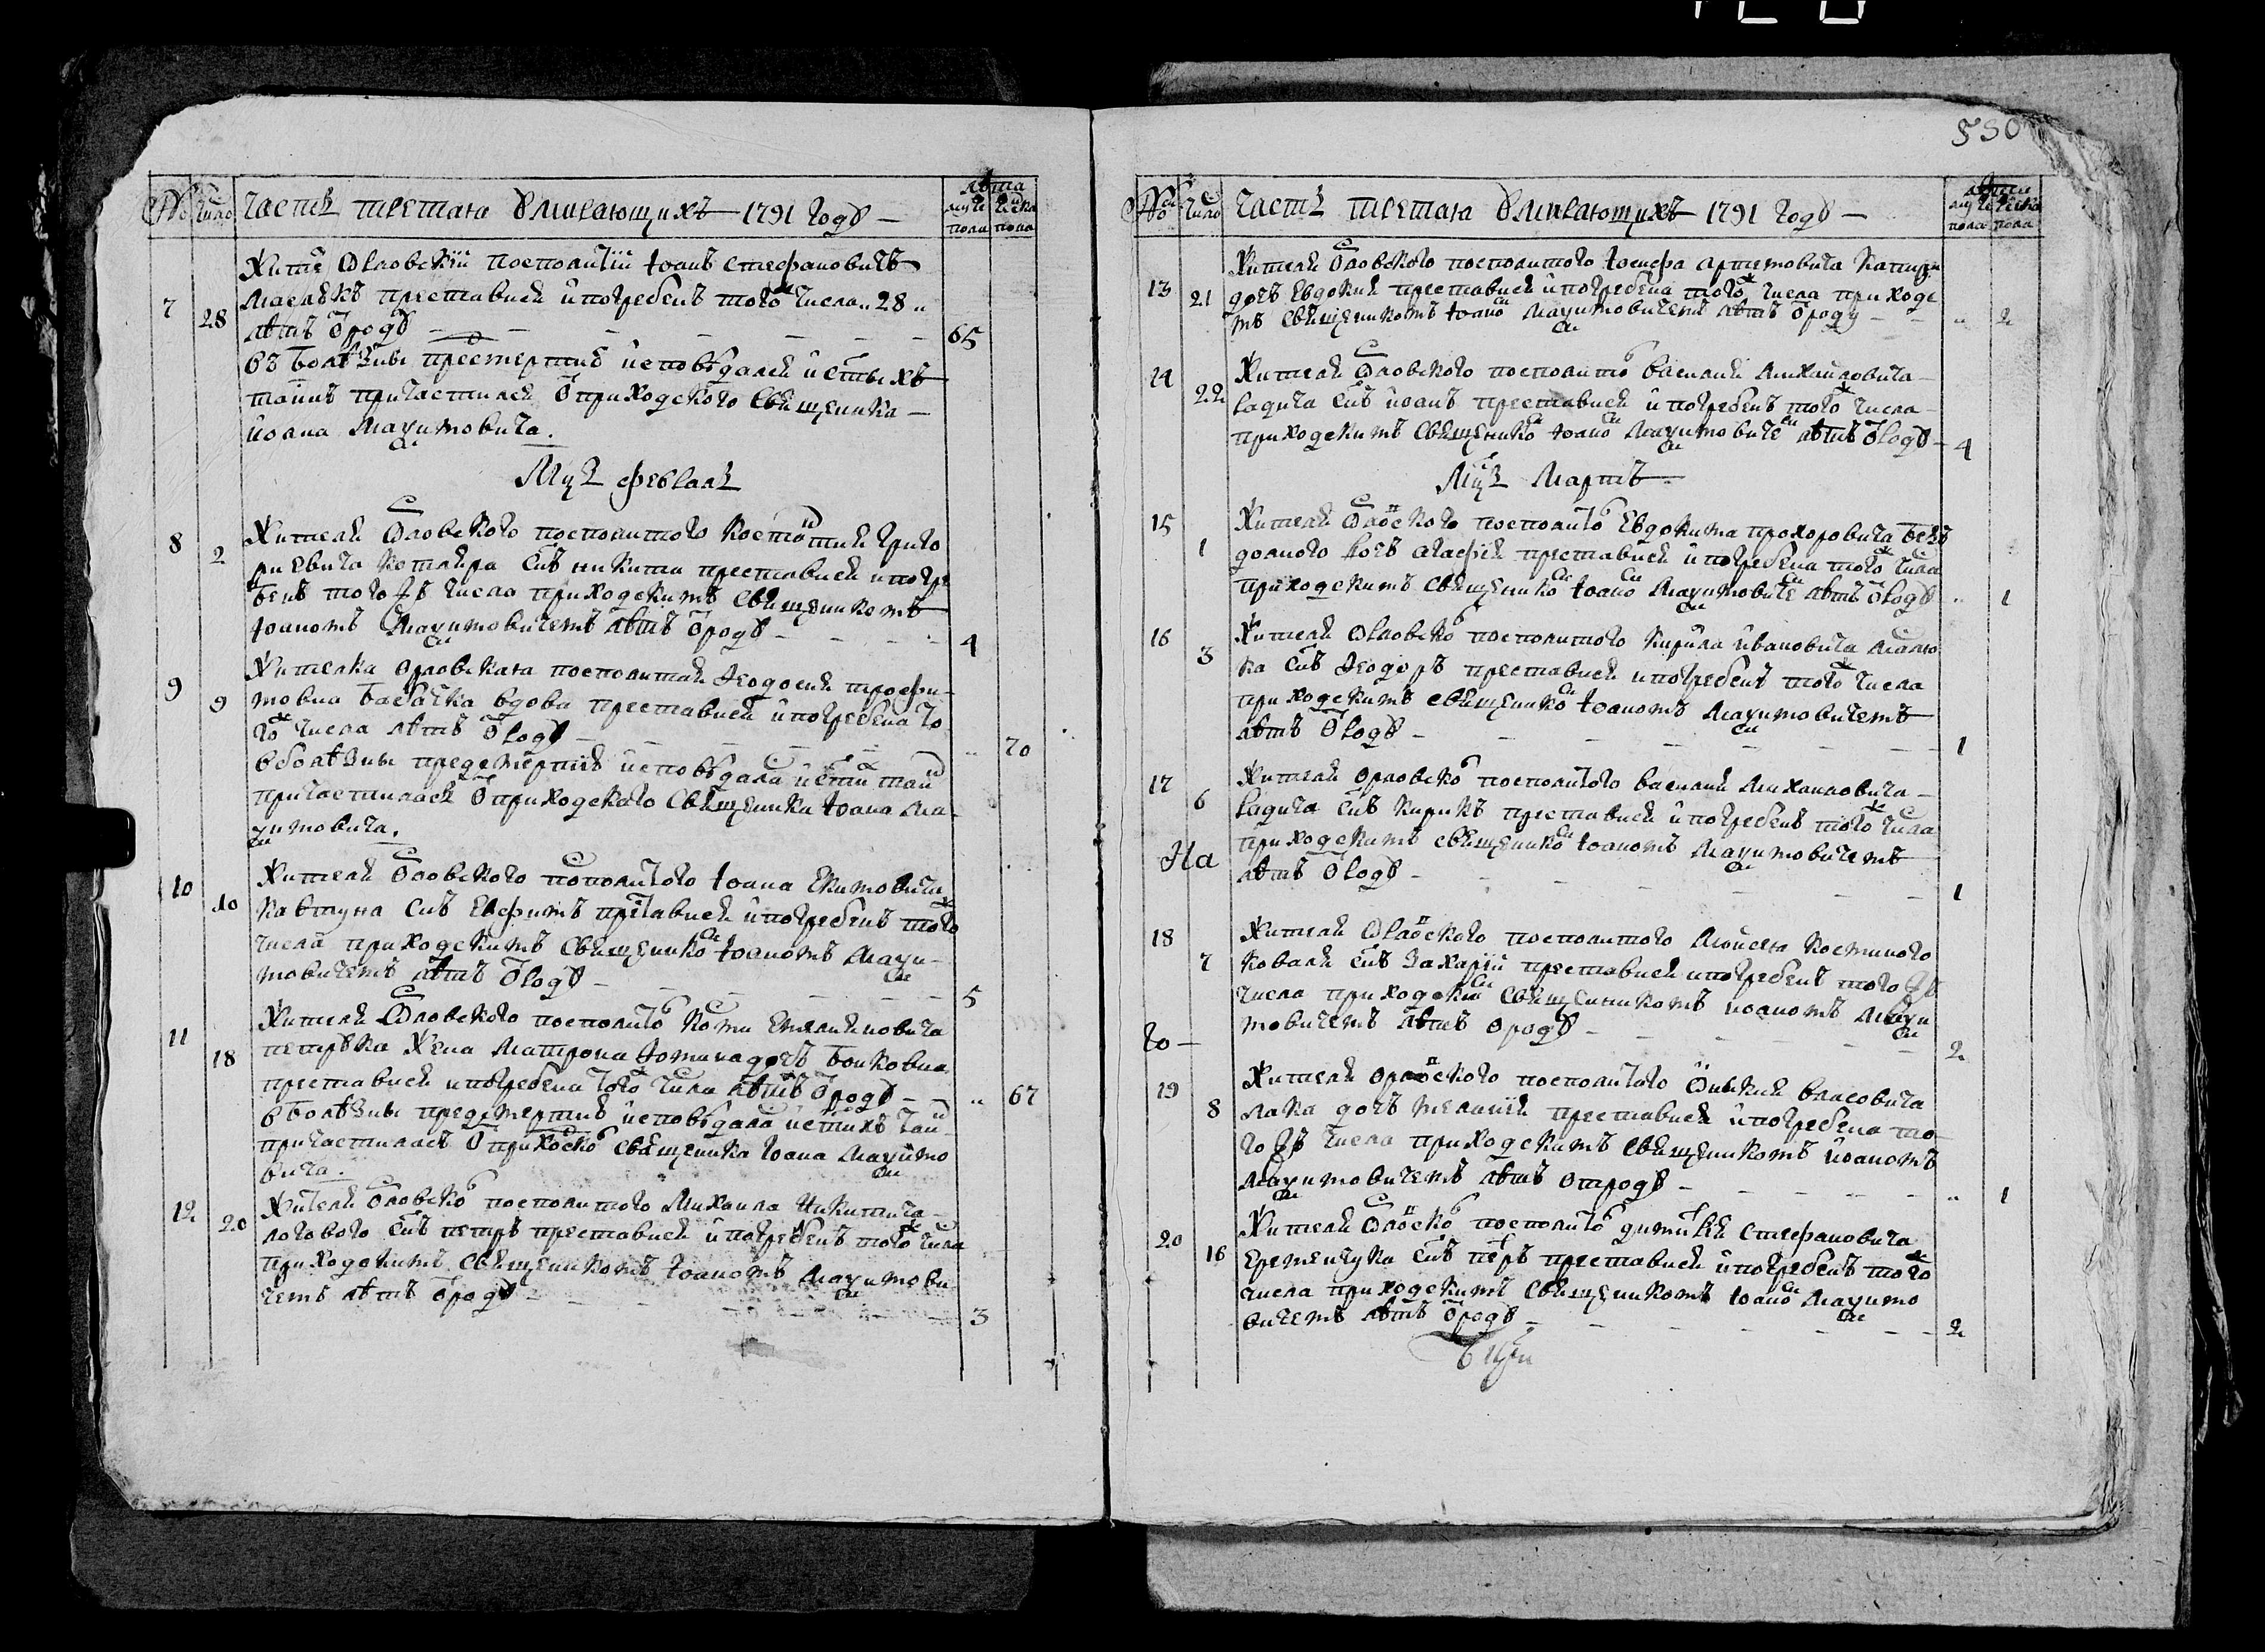 № число Часть третяя умирающихъ 1791 году лѣта муже пола женска пола
Жите Орловскій посполитій Іоанъ Стефановичъ
7 28 Маслѣкъ преставися и погребенъ того числа „28„
лѣтъ ѿ роду 65
въ болѣзны престертий исповѣдался и стыхъ
таинъ причастился ѿ приходского священика
иоана Маѯимовича.
Мцъ февраль
8 2 Жителя Орловского посполитого Костантия Григо
риевича Котляра снъ никита преставися и погре
бенъ того жъ числа приходскимъ священикомъ
Іоаномъ Маѯимовичемъ лѣтъ ѿ роду 4
9 9 Жителка орловская посполитая Ѳеодосия трофи
мовна вдова преставися и погребена то
го числа лѣтъ ѿ роду „ 70
в болѣзны предсмертния исповѣдала и стихъ таин
причастилася ѿ приходского священика Іоана Ма
ѯимовича.
10 10 Жителя Орловского посполитого Іоана Екимовича
Кавтуна снъ Евфимъ преставися и погребенъ того
числа приходскимъ священико Іоаномъ Маѯи
мовичемъ лѣтъ ѿ роду 5
11 18 Жителя Орловского посполито Козми Емелияновича
петрѣка Жена Матрона Ѳомина дочъ
преставися и погребена того числа лѣтъ ѿ роду „ 67
в болѣзны предсмертния исповѣдала и стихъ таин
причастилася ѿ приходско священика Іоана Маѯимо
вича.
12 20 Жителя Орловско посполитого Михаила Никитича
логового снъ петръ преставися и погребенъ того числа
приходскимъ священикомъ Іоаномъ Маѯимови
чемъ лѣтъ ѿ роду 3
530
№ число Часть третяя умирающихъ 1791 году лѣта муже пола женска пола
Жителя Орловского посполитого Іосифа Артемовича
13 21 дочъ Евдокия преставися и погребена того числа приходс
мъ священикомъ Іоано Маѯимовичемъ лѣтъ ѿ роду „ 2
14 22 Жителя Орловского посполито Василия Михайловича
Радича снъ иоанъ преставися и погребенъ того числа
приходскимъ священико Іоано Маѯимовиче лѣтъ ѿ роду 4
Мцъ Мартъ
15 1 Жителя Орловского посполито Евдокима прохоровича безъ
долного дочъ агафия преставися и погребена того числа
приходскимъ священико Іоано Маѯимовиче лѣтъ ѿ роду „ 1
16 3 Жителя Орловско посполитого Кирила ивановича
ка снъ Ѳеодоръ преставися и погребенъ того числа
приходскимъ священико Іоаномъ Маѯимовичемъ
лѣтъ ѿ роду 1
17 6 Жителя орловско посполитого василия Михаиловича
Радича снъ Кирикъ преставися и погребенъ того числа
На приходскимъ священико Іоаномъ Маѯимовичемъ
лѣтъ ѿ роду 1
18 7 Жителя Орловского посполитого Моисея Костиного
коваля снъ Захарій преставися и погребенъ того жъ
числа приходским священникомъ иоаномъ Маѯи
го мовичемъ лѣтъ ѿ роду 2
19 8 Жителя орловского посполитого власовича
лака дочъ мелания преставися и погребена то
го жъ числа приходскимъ священикомъ иоаномъ
Маѯимовичемъ лѣтъ отроду „ 1
20 16 Жителя Орловско посполито димитрия Стефановича
Еременчука снъ петръ преставися и погребенъ того
числа приходскимъ священикомъ Іоано Маѯимо
вичемъ лѣтъ ѿ роду 2